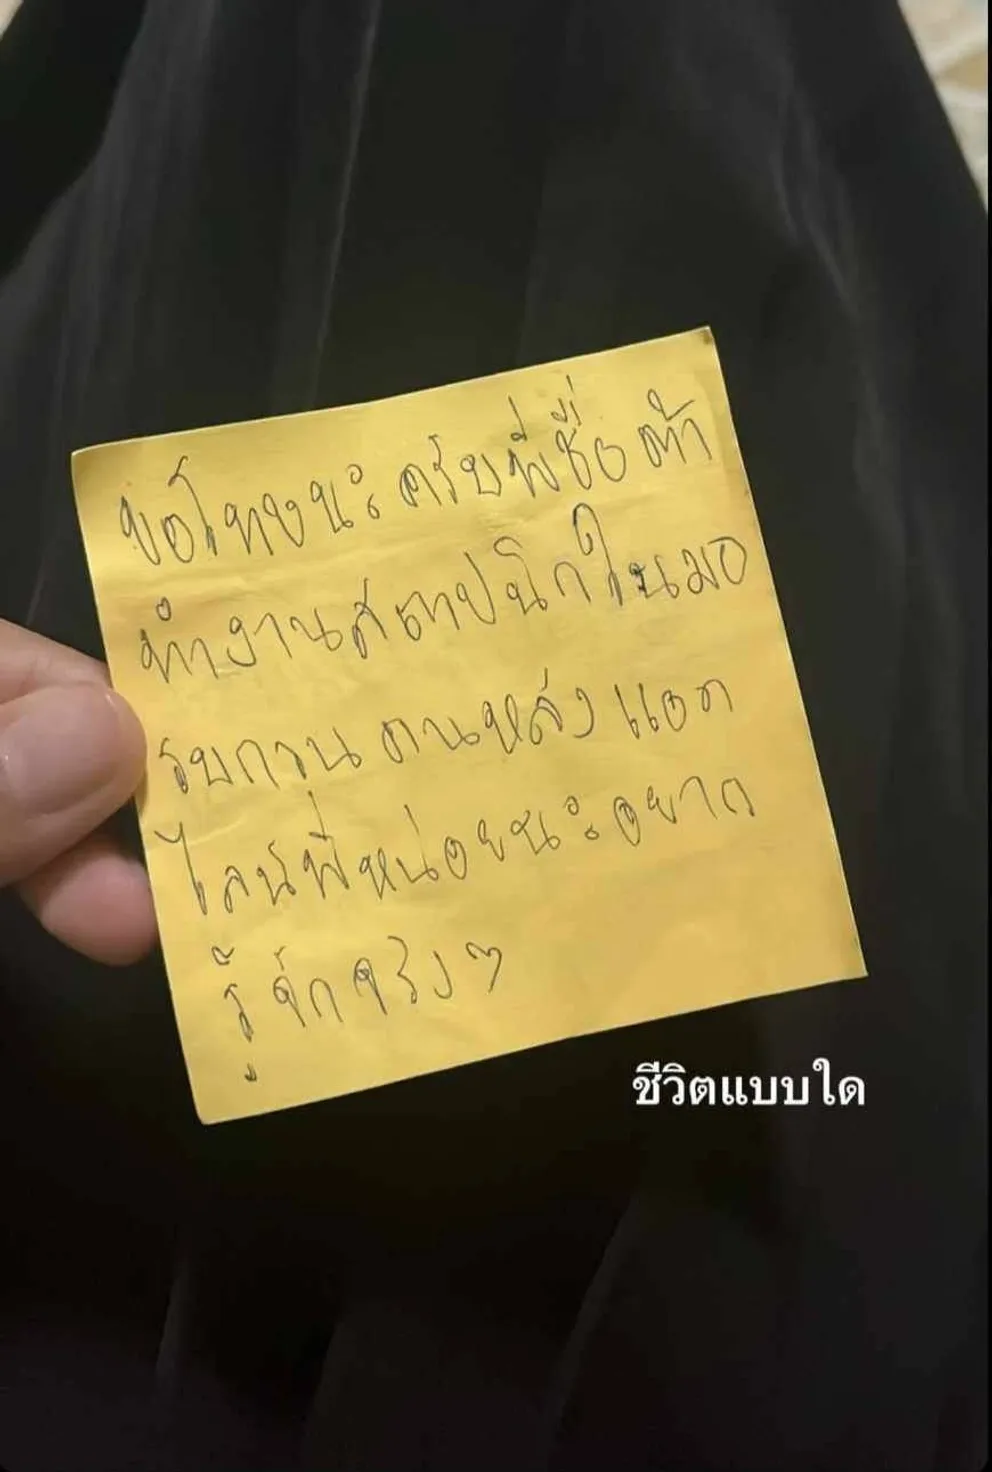 ขอโทษนะครับพี่ชื่อต้า
ทำงานสถาปนิกในมอ
รบกวนคนหล่งแอด
ไลน์พี่หน่อยนะอยาก
รู้จักจริงๆ
ชีวิตแบบใด